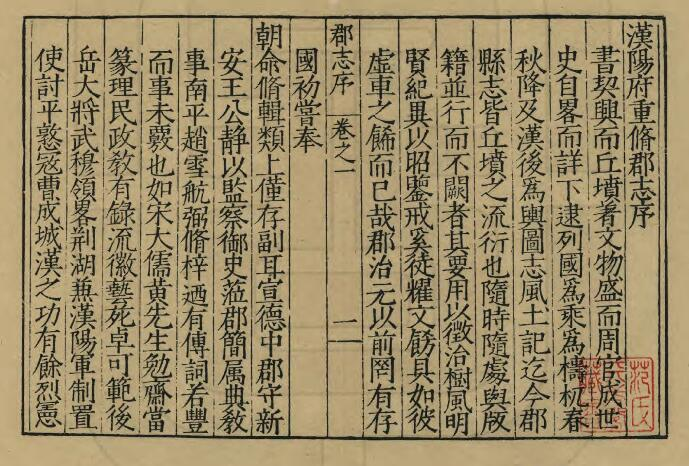 漢陽府重脩郡志序
書契興而丘墳著文物盛而周官成世
史自畧而詳下逮列國為乘為檮杌春
秋降及漢後為輿圖志風土記迄今郡
縣志皆丘墳之流衍也隨時隨處與版
籍並行而不闕者其要用以徵治樹風明
賢紀異以昭鑒戒奚徒耀文餙具如彼
虛車之餙而已哉郡治元以前罔有存
郡志序 卷之一 一
國初嘗奉
朝命脩輯類上僅存副耳宣德中郡守新
安王公静以監察御史蒞郡簡属典教
事南平趙雪航弼脩梓迺有傳詞若豐
而事未覈也如宋大儒黄先生勉齋當
篆理民政教有錄流徽藝苑卓可範後
岳大將武穆領畧荆湖兼漢陽軍制置
使討平憝寇曹成城漢之功有餘烈憲